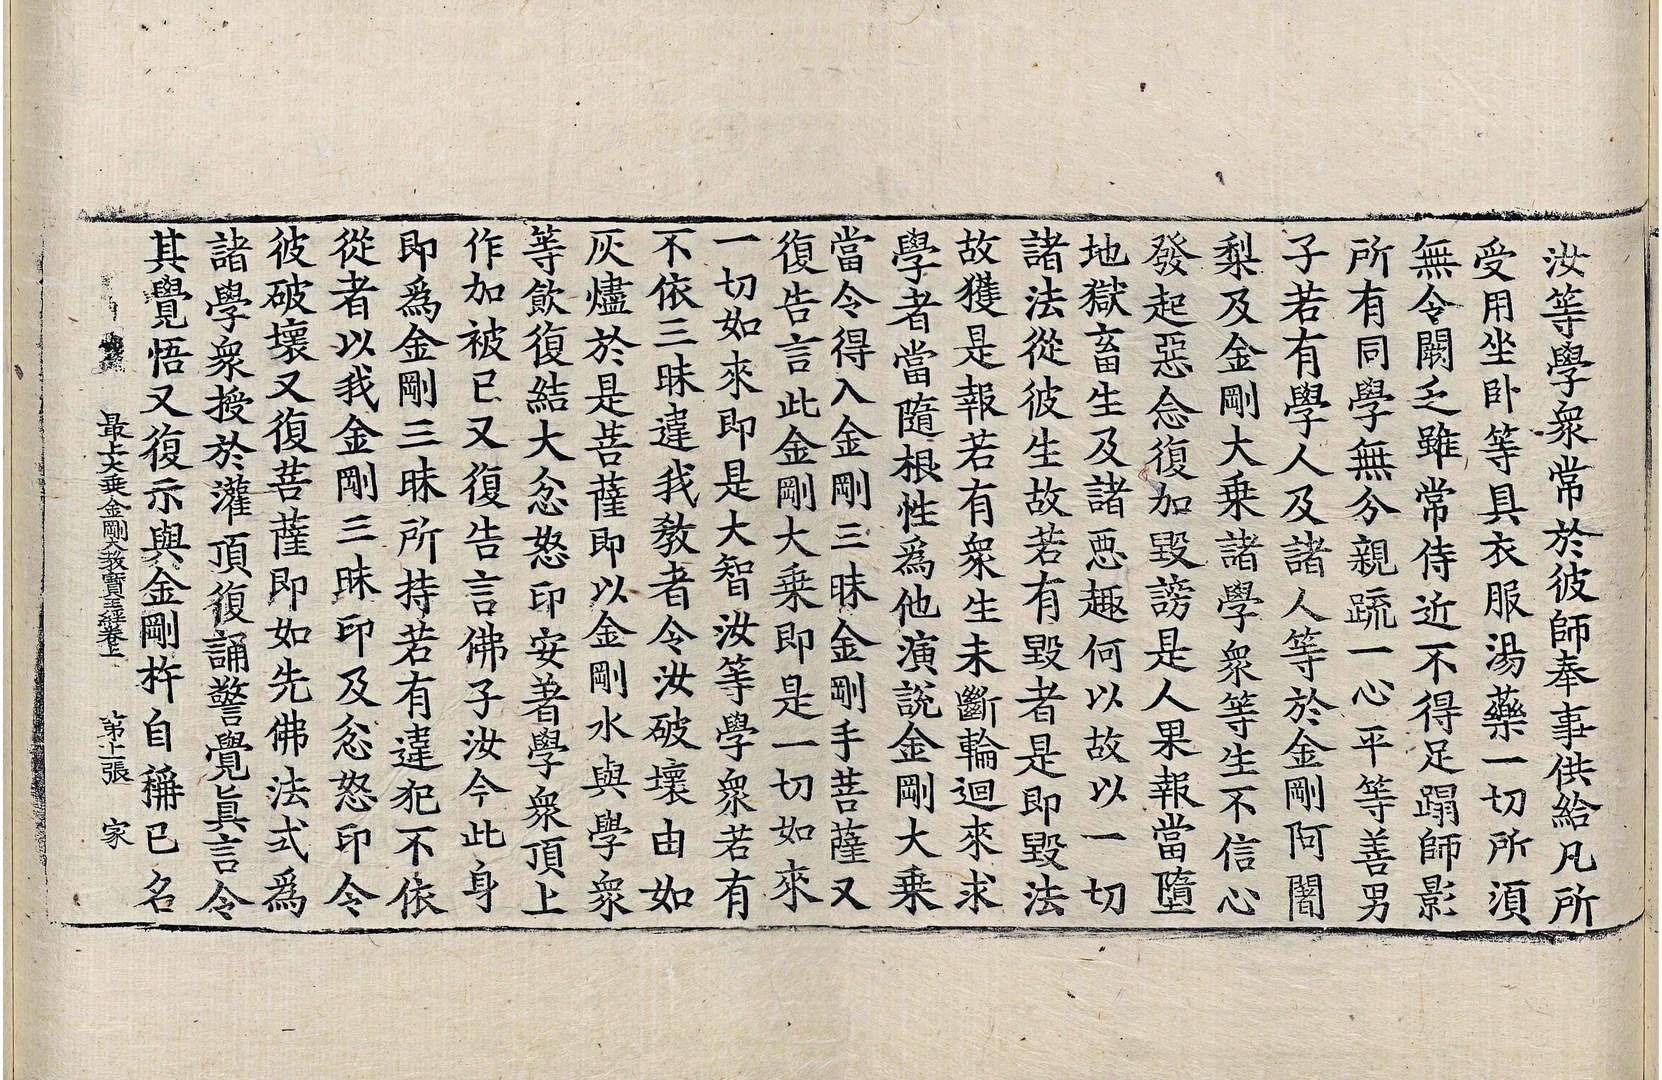 汝等學衆常於彼師奉事供給凡所
受用坐卧等具衣服湯藥一切所須
無令闕乏雖常侍近不得足蹋師影
所有同學無分親疏一心平等善男
子若有學人及諸人等於金剛阿闍
梨及金剛大乗諸學衆等生不信心
發起惡念復加毀謗是人果報當墮
地獄畜生及諸惡趣何以故以一切
諸法從彼生故若有毀者是即毀法
故獲是報若有衆生未斷輪迴來求
學者當隨根性爲他演說金剛大乗
當令得入金剛三昧金剛手菩薩又
復告言此金剛大乗即是一切如來
一切如來即是大智汝等學衆若有
不依三昧違我教者令汝破壞由如
灰燼於是菩薩即以金剛水與學衆
等飲復結大忿怒印安著學衆頂上
作加被已又復告言佛子汝今此身
即爲金剛三昧所持若有違犯不依
從者以我金剛三昧印及忿怒印令
彼破壞又復菩薩即如先佛法式爲
諸學衆授於灌頂復誦警覺眞言令
其覺悟又復示與金剛杵自稱已名
最上大乗金剛大教寶王經卷上 第十二張 家